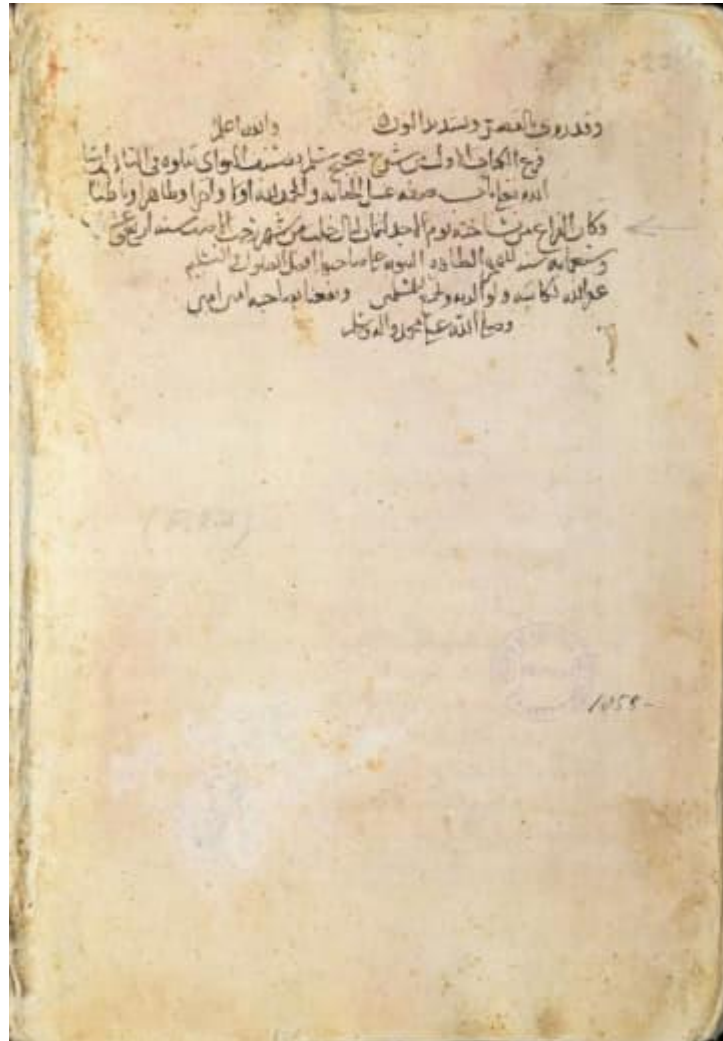 وقد روى بالقصر وتشديد الواو والله اعلم
فرغ الكتاب الاول من شرح صحيح مسلم للنواوي يتلوه في الثاني ان شا
الله تعالى باب صفة غسل الجنابة والحمد لله اولا واخرا وظاهرا وباطنا
وكان الفراغ من نساخته يوم الاحد لثمان ليال خلت من شهر رجب الاصب سنة اربعين
وسبعمايه سنه للهجرة الطاهره النبويه على صاحبها افضل الصلوات والتسليم
غفر الله لكاتبه ولوالديه ولجميع المسلمين ونفعنا به صاحبه امين امين
وصلى الله على محمد واله وسلم
1058-